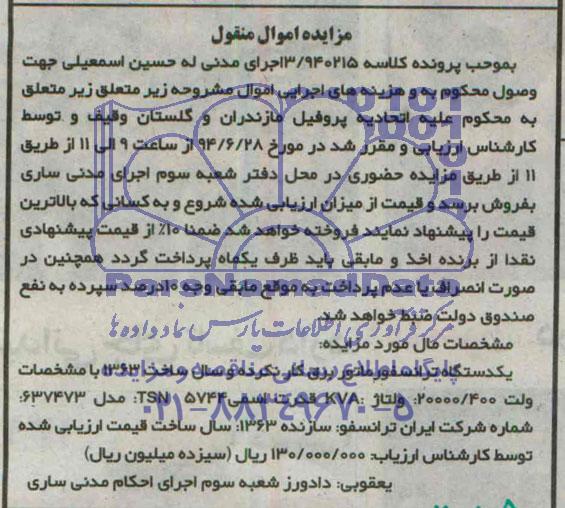 مزایده اموال منقول
بموجب پرونده کلاسه ۳/۹۴۰۲۱۵اجرای مدنی له حسین اسمعیلی جهت
وصول محکوم به و هزینه های اجرایی اموال مشروحه زیر متعلق زیر متعلق
به محکوم علیه اتحادیه پروفیل مازندران و گلستان وقیف و توسط
کارشناس ارزیابی و مقرر شد در مورخ ۹۴/۶/۲۸ از ساعت ۹ الی ۱۱ از طریق
۱۱ از طریق مزایده حضوری در محل دفتر شعبه سوم اجرای مدنی ساری
بفروش برسد و قیمت از میزان ارزیابی شده شروع و به کسانی که بالاترین
قیمت را پیشنهاد نمایند فروخته خواهد شد ضمنا ۱۰٪ از قیمت پیشنهادی
نقدا از برنده اخذ و مابقی باید ظرف یکماه پرداخت گردد همچنین در
صورت انصراف یا عدم پرداخت به موقع مابقی وجه ۱۰درصد سپرده به نفع
صندوق دولت ضبط خواهد شد.
ParsNamadData
مرکز فرآوری اطلاعات پارس نماد داده ها
مشخصات مال مورد مزایده:
پایگاه اطلاع رسانی مناقصه و مزایده
یکدستگاه ترانسفورماتور برق کار نکرده و سال ساخت ۱۳۶۳ با مشخصات
۰۲۱-۸۸۳۴۹۶۷۰-۵
ولت ۲۰۰۰۰/۴۰۰: ولتاژ KVA: قدرت اسمی TSN ۵۷۴۴: مدل ۶۳۷۴۷۳:
شماره شرکت ایران ترانسفو: سازنده ۱۳۶۳: سال ساخت قیمت ارزیابی شده
توسط کارشناس ارزیاب: ۱۳۰/۰۰۰/۰۰۰ ریال (سیزده میلیون ریال)
یعقوبی: دادورز شعبه سوم اجرای احکام مدنی ساری